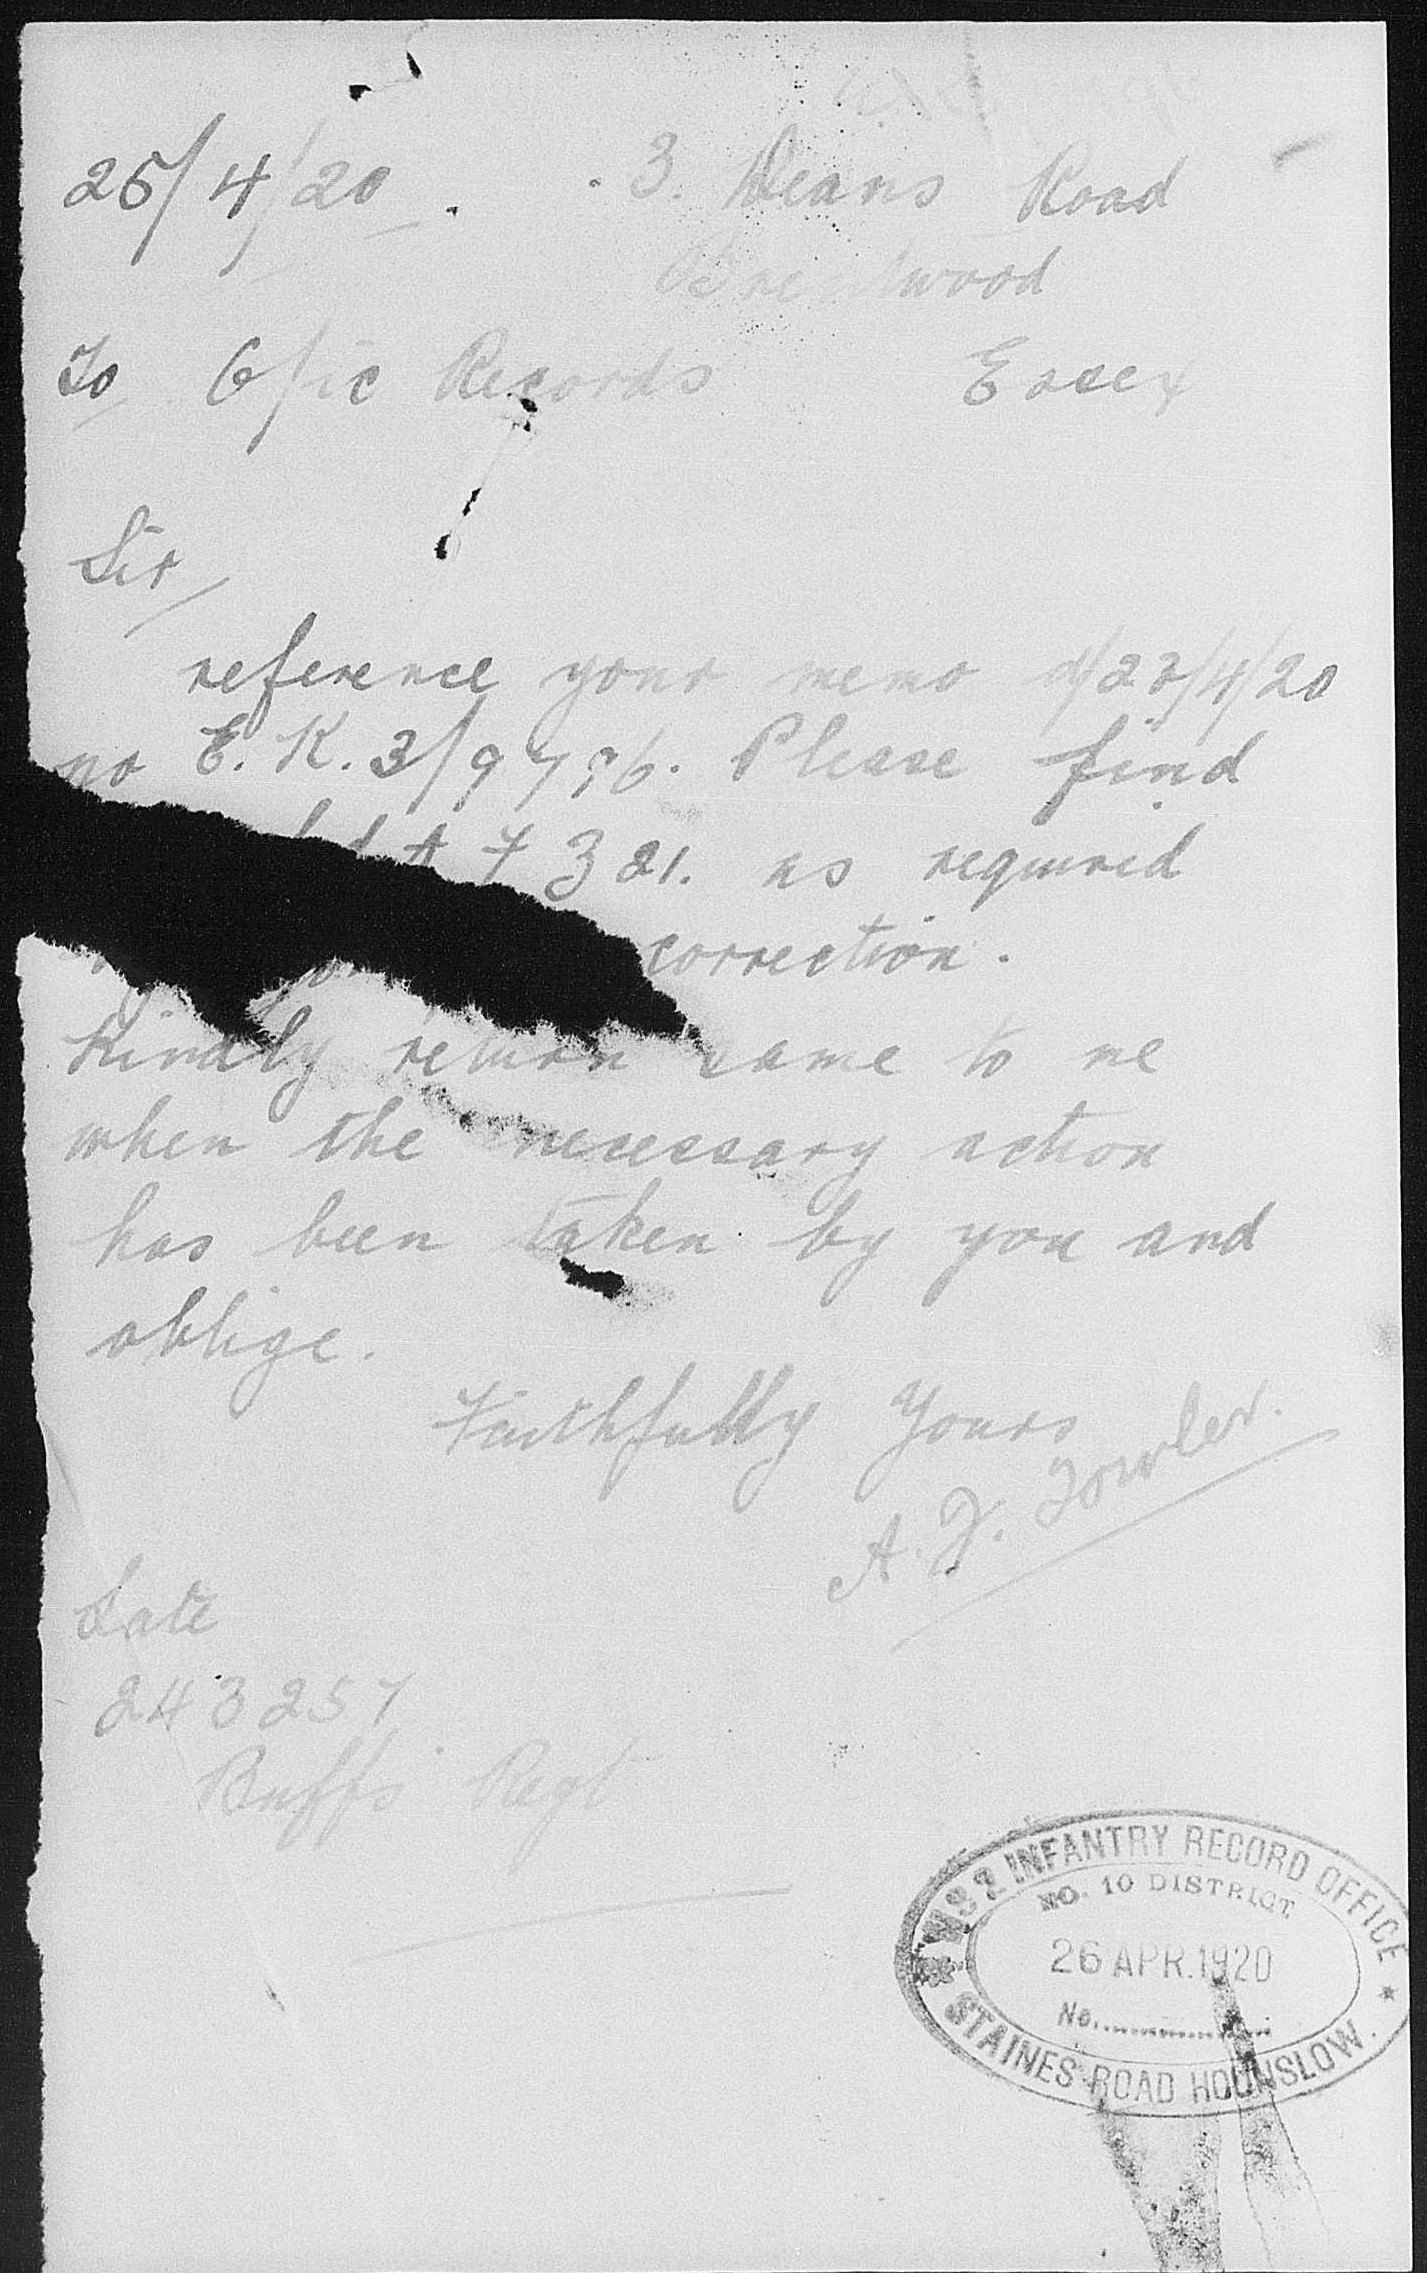 25/4/20. 3. Deans Road
Brentwood
To O/ic Records Essex
Sir
reference your memo d/23/4/20
no E.K.3/9796. Please find
321. as required
correction.
Kindly return same to me
when the necessary action
has been taken by you and
oblige.
Faithfully Yours
A. F. Fowler.
Late
243257
Buffs Regt
No 2 INFANTRY RECORD OFFICE
NO. 10 DISTRICT
26 APR. 1920
No.
STAINES ROAD HOUNSLOW.